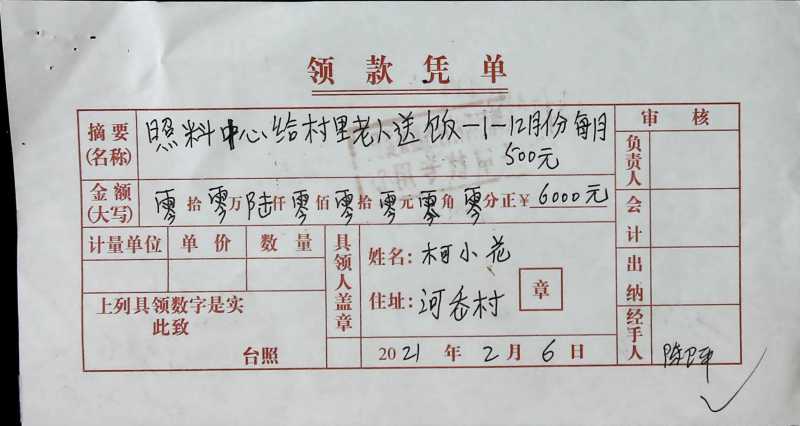 领款凭单
摘要(名称) 照料中心给村里老人送饭-1-12月份每月500元
审核
金额(大写) 零拾零万陆仟零佰零拾零元零角零分正¥6000元
负责人
会计
计量单位 单价 数量
具领人盖章
姓名:柯小花
章
出纳
上列具领数字是实
此致
住址:河岙村
台照
2021年2月6日
经手人